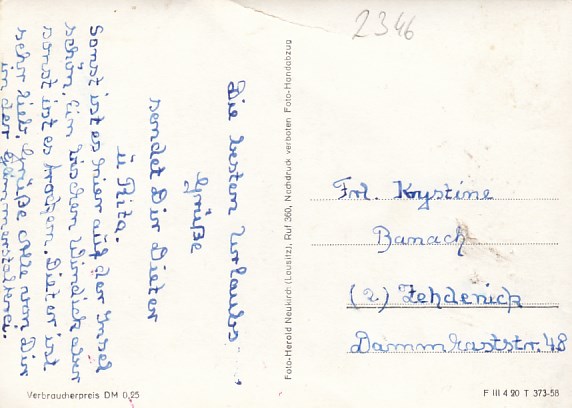 2346
Die besten Urlaubs-
Grüße
sendet Dir Dieter
u Rita.
Sonst ist es hier auf der Insel
schön, Ein bischen Windich aber
sonst ist es trocken. Dieter ist
sehr lieb, Grüße alle von Dir
in der
Frl. Krystine
Banach
(2) Zehdenick
Dammhaststr. 48
Foto-Herold Neukirch (Lausitz), Ruf 360, Nachdruck verboten Foto-Handabzug
Verbraucherpreis DM 0,25
F III 4 20 T 373-58